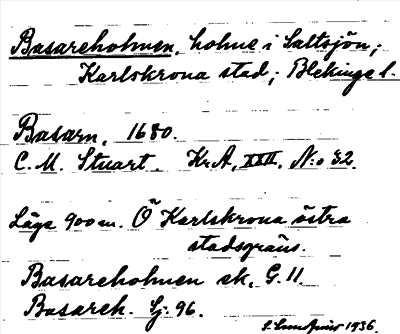 Basareholmen, holme i Saltsjön;
Karlskrona stad; Blekinge l.
Basarn, 1680.
C. M. Stuart. Kr. A, XXII, N:o 32
Läge 900 m. Ö Karlskrona östra
stadsgräns.
Basareholmen ek. G. 11.
Basareh. Sj: 96.
1936.